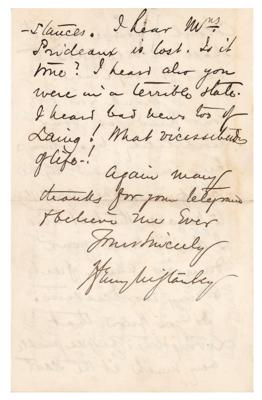 -stances. I hear Mrs
Prideaux is lost. Is it
true? I heard also you
were in a terrible state.
I heard bad news too of
Laing! What vicissitudes
of life-!
Again many
thanks for your telegram
& believe me Ever
Yours Sincerely
Henry M Stanley